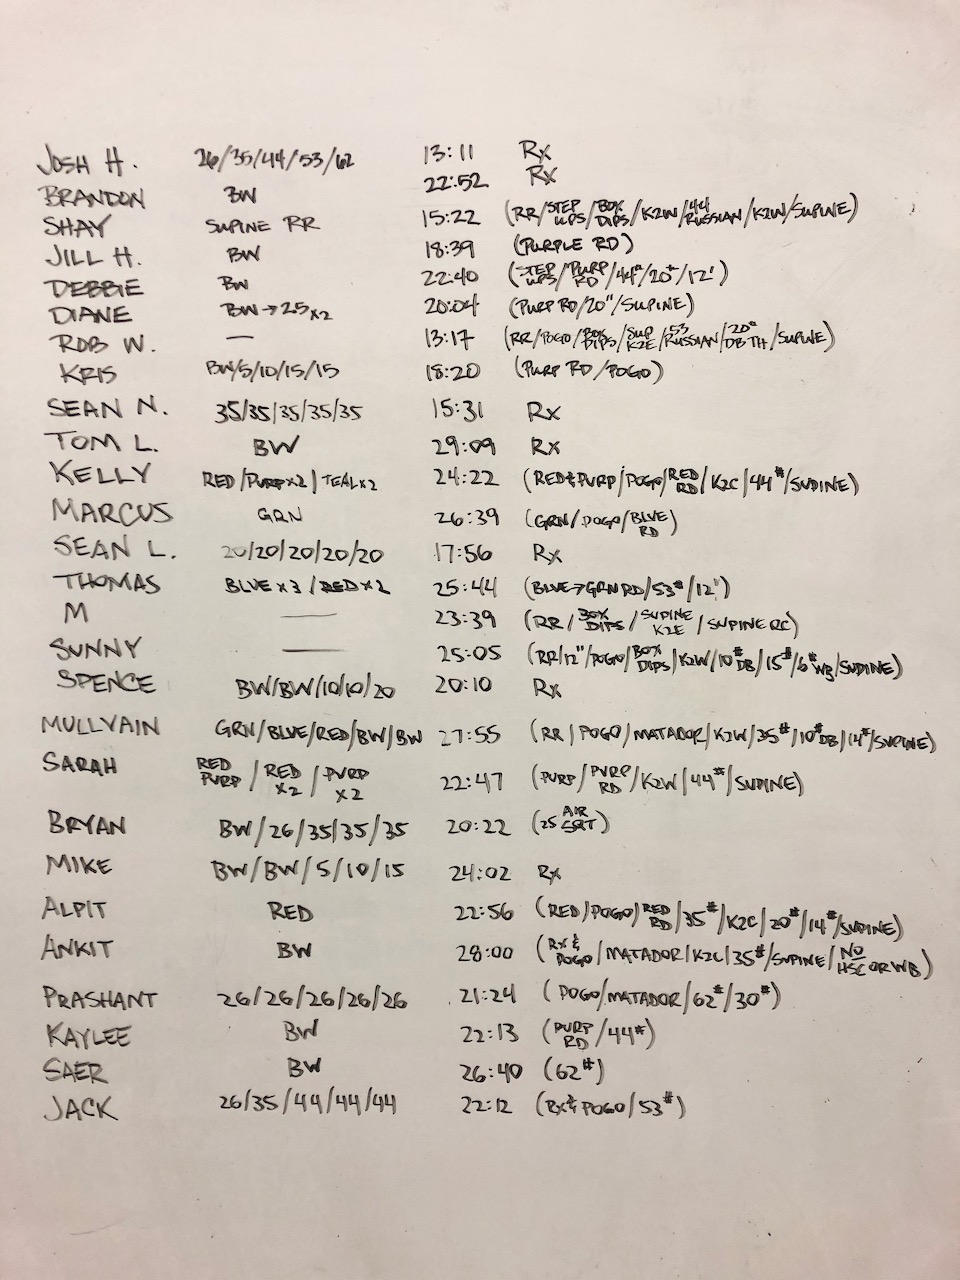 JOSH H. 26/35/44/53/62 13:11 Rx
BRANDON BW 22:52 Rx
SHAY SUPINE RR 15:22 (RR/STEP UPS/BOX DIPS/K2W/44 RUSSIAN/K2W/SUPINE)
JILL H. BW 18:39 (PURPLE RD)
DEBBIE BW 22:40 (STEP UPS/PURP RD/44#/20#/12')
DIANE BW→25x2 20:04 (PURP RD/20"/SUPINE)
ROB W. — 13:17 (RR/POGO/BOX DIPS/SUP K2E/53 RUSSIAN/20# DB TH/SUPINE)
KRIS BW/5/10/15/15 18:20 (PURP RD/POGO)
SEAN N. 35/35/35/35/35 15:31 Rx
TOM L. BW 29:09 Rx
KELLY RED/PURPx2/TEALx2 24:22 (RED&PURP/POGO/RED RD/K2C/44#/SUPINE)
MARCUS GRN 26:39 (GRN/POGO/BLUE RD)
SEAN L. 20/20/20/20/20 17:56 Rx
THOMAS BLUE x3/RED x2 25:44 (BLUE→GRN RD/53#/12')
M — 23:39 (RR/BOX DIPS/SUPINE K2E/SUPINE RC)
SUNNY — 25:05 (RR/12"/POGO/BOX DIPS/K2W/10# DB/15#/6# WB/SUPINE)
SPENCE BW/BW/10/10/20 20:10 Rx
MULLVAIN GRN/BLUE/RED/BW/BW 27:55 (RR/POGO/MATADOR/K2W/35#/10# DB/14#/SUPINE)
SARAH RED PURP/RED x2/PURP x2 22:47 (PURP/PURP RD/K2W/44#/SUPINE)
BRYAN BW/26/35/35/35 20:22 (25 AIR SQT)
MIKE BW/BW/5/10/15 24:02 Rx
ALPIT RED 22:56 (RED/POGO/RED RD/35#/K2C/20#/14#/SUPINE)
ANKIT BW 28:00 (RX & POGO/MATADOR/K2C/35#/SUPINE/NO HSC OR WB)
PRASHANT 26/26/26/26/26 21:24 (POGO/MATADOR/62#/30#)
KAYLEE BW 22:13 (PURP RD/44#)
SAER BW 26:40 (62#)
JACK 26/35/44/44/44 22:12 (RX & POGO/53#)